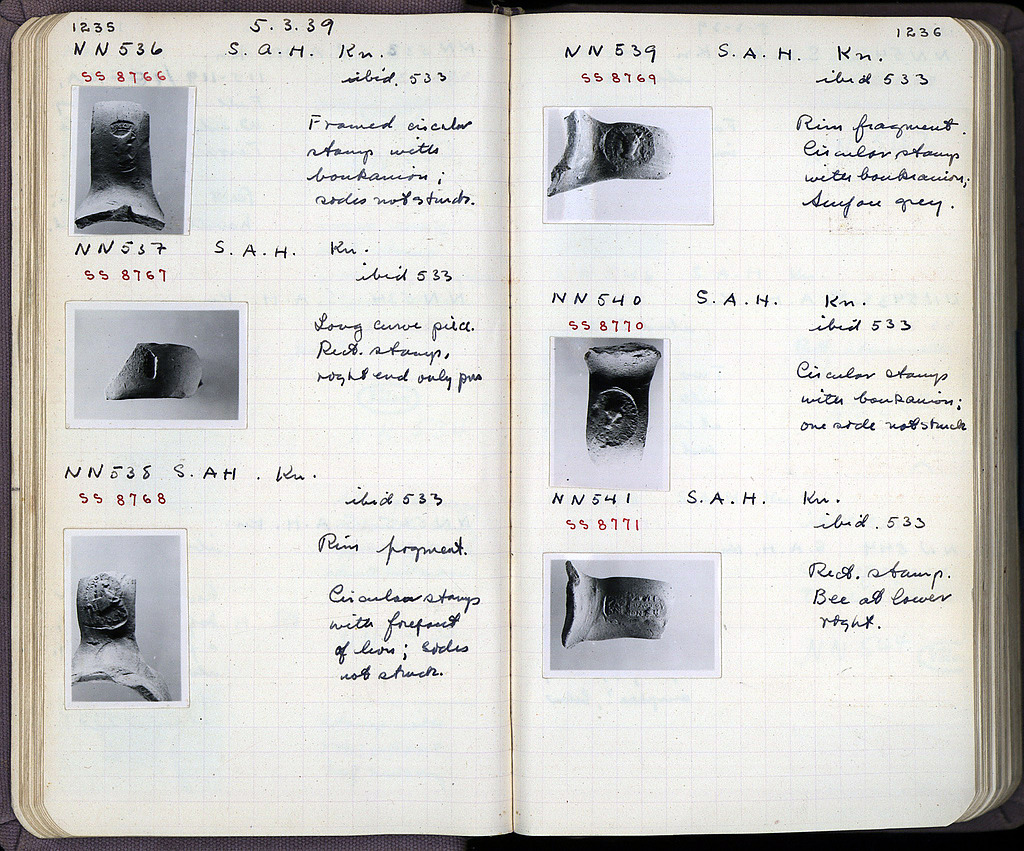 1235 5.3.39
NN536 S.A.H. Kn.
SS 8766 ibid. 533
Framed circular
stamp with
boukranion;
sides not struck.
NN537 S.A.H. Kn.
SS 8767 ibid 533
Long curve
Rect. stamp,
right end only
NN538 S.AH. Kn.
SS 8768 ibid 533
Rim fragment.
Circular stamp
with forepart
of lion; sides
not struck.
1236
NN539 S.A.H. Kn.
SS 8769 ibid 533
Rim fragment.
Circular stamp
with boukranion;
Surface grey.
NN540 S.A.H. Kn.
SS 8770 ibid 533
Circular stamp
with boukranion;
one side not struck
NN541 S.A.H. Kn.
SS 8771 ibid. 533
Rect. stamp.
Bee at lower
right.